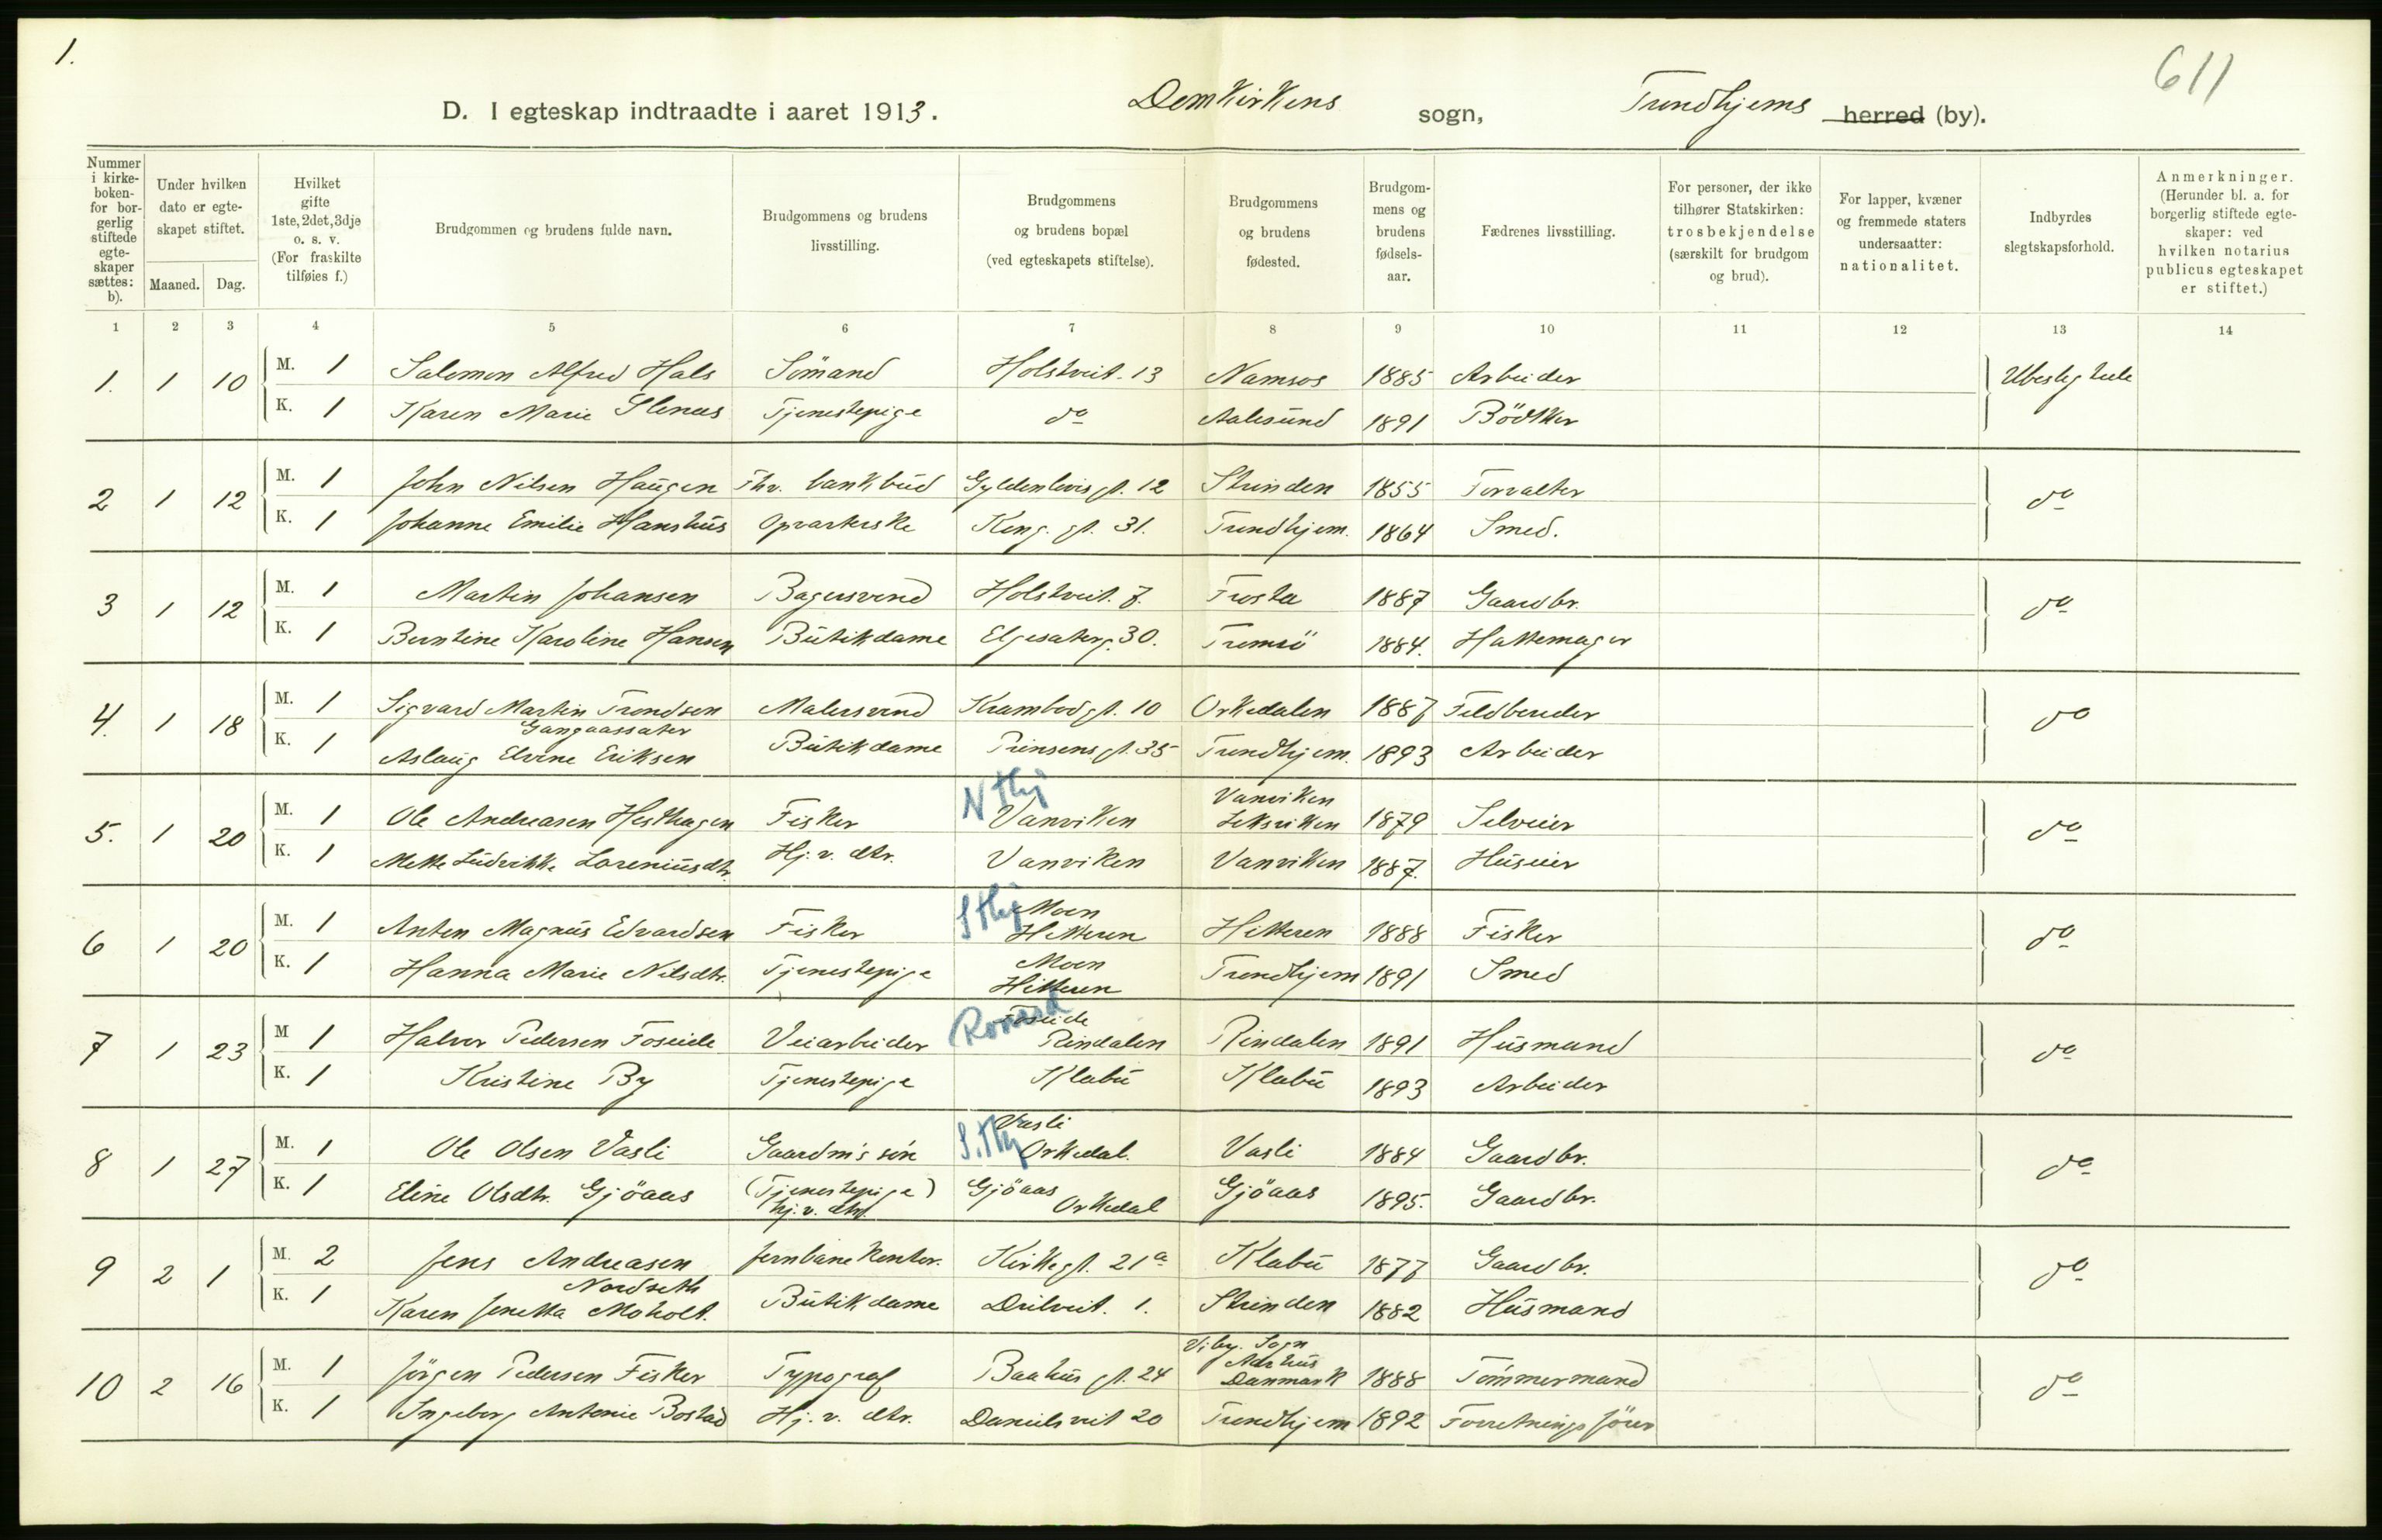 1.
611
D. I egteskap indtraadte i aaret 1913. Domkirkens sogn, Trondhjems herred (by).
Nummer i kirkeboken- for borgerlig stiftede egteskaper sættes: b).
Under hvilken dato er egteskapet stiftet.
Maaned. Dag.
Hvilket gifte 1ste, 2det, 3dje o. s. v. (For fraskilte tilføies f.)
Brudgommen og brudens fulde navn.
Brudgommens og brudens livsstilling.
Brudgommens og brudens bopæl (ved egteskapets stiftelse).
Brudgommens og brudens fødested.
Brudgommens og brudens fødselsaar.
Fædrenes livsstilling.
For personer, der ikke tilhører Statskirken: trosbekjendelse (særskilt for brudgom og brud).
For lapper, kvæner og fremmede staters undersaatter: nationalitet.
Indbyrdes slegtskapsforhold.
Anmerkninger. (Herunder bl. a. for borgerlig stiftede egteskaper: ved hvilken notarius publicus egteskapet er stiftet.)
1 2 3 4 5 6 7 8 9 10 11 12 13 14
1. 1 10 M. 1 Salomon Alfred Hals Sömand Holstveit. 13 Namsos 1885 Arbeider Ubeslegtede
K. 1 Karen Marie Stenaas Tjenestepige do Aalesund 1891 Bödtker
2 1 12 M. 1 John Nilsen Haugen Fhv. bankbud Gyldenlövis gt. 12 Strinden 1855 Forvalter do
K. 1 Johanne Emilie Hanshus Opvarterske Kong. gt. 31. Trondhjem. 1864 Smed.
3 1 12 M. 1 Martin Johansen Bagersvend Holstveit. 7. Frosta 1887 Gaardbr. do
K. 1 Berntine Karoline Hansen Butikdame Elgesaterg. 30. Tromsö 1884. Hattemager
4. 1 18 M. 1 Sigvard Martin Trondsen Malersvend Krambod gt. 10 Orkedalen 1887 Feldbereder do
Gangaassæter
K. 1 Aslaug Elvine Eriksen Butikdame Prinsens gt. 35 Trondhjem. 1893 Arbeider
N thj Vanviken
5. 1 20 M. 1 Ole Andreasen Hesthagen Fisker Vanviken Leksviken 1879 Selveier do
K. 1 Mette Ludvikke Loreniusdtr. Hj. v. dtr. Vanviken Vanviken 1887. Huseier
S thj Moen
6 1 20 M. 1 Anton Magnus Edvardsen Fisker Hitteren Hitteren 1888 Fisker do
Moen
K. 1 Hanna Marie Nilsdtr. Tjenestepige Hitteren Trondhjem 1891 Smed
Romsd Foseide
7 1 23 M 1 Halvor Pedersen Foseide Veiarbeider Rindalen Rindalen 1891 Husmand do
K. 1 Kristine By Tjenestepige Klæbu Klæbu 1893 Arbeider
S. Thj Vasli
8 1 27 M. 1 Ole Olsen Vasli Gaardm's sön Orkedal. Vasli 1884 Gaardbr. do
K. 1 Eline Olsdtr. Gjöaas (Tjenestepige) Gjöaas Gjöaas 1895. Gaardbr.
hj. v. dtr. Orkedal
9 2 1 M. 2 Jens Andreasen Jernbanekontor. Kirkegt. 21a Klæbu 1877 Gaardbr. do
Nordseth
K. 1 Karen Jenetta Moholt. Butikdame Duilveit. 1. Strinden 1882 Husmand
Viby. Sogn
Aarhus
10 2 16 M. 1 Jörgen Pedersen Fisker Typograf Baahus gt. 24 Danmark 1888 Tömmermand do
K. 1 Ingeborg Antonie Bostad Hj. v. dtr. Danielsveit 20 Trondhjem 1892 Forretningsförer